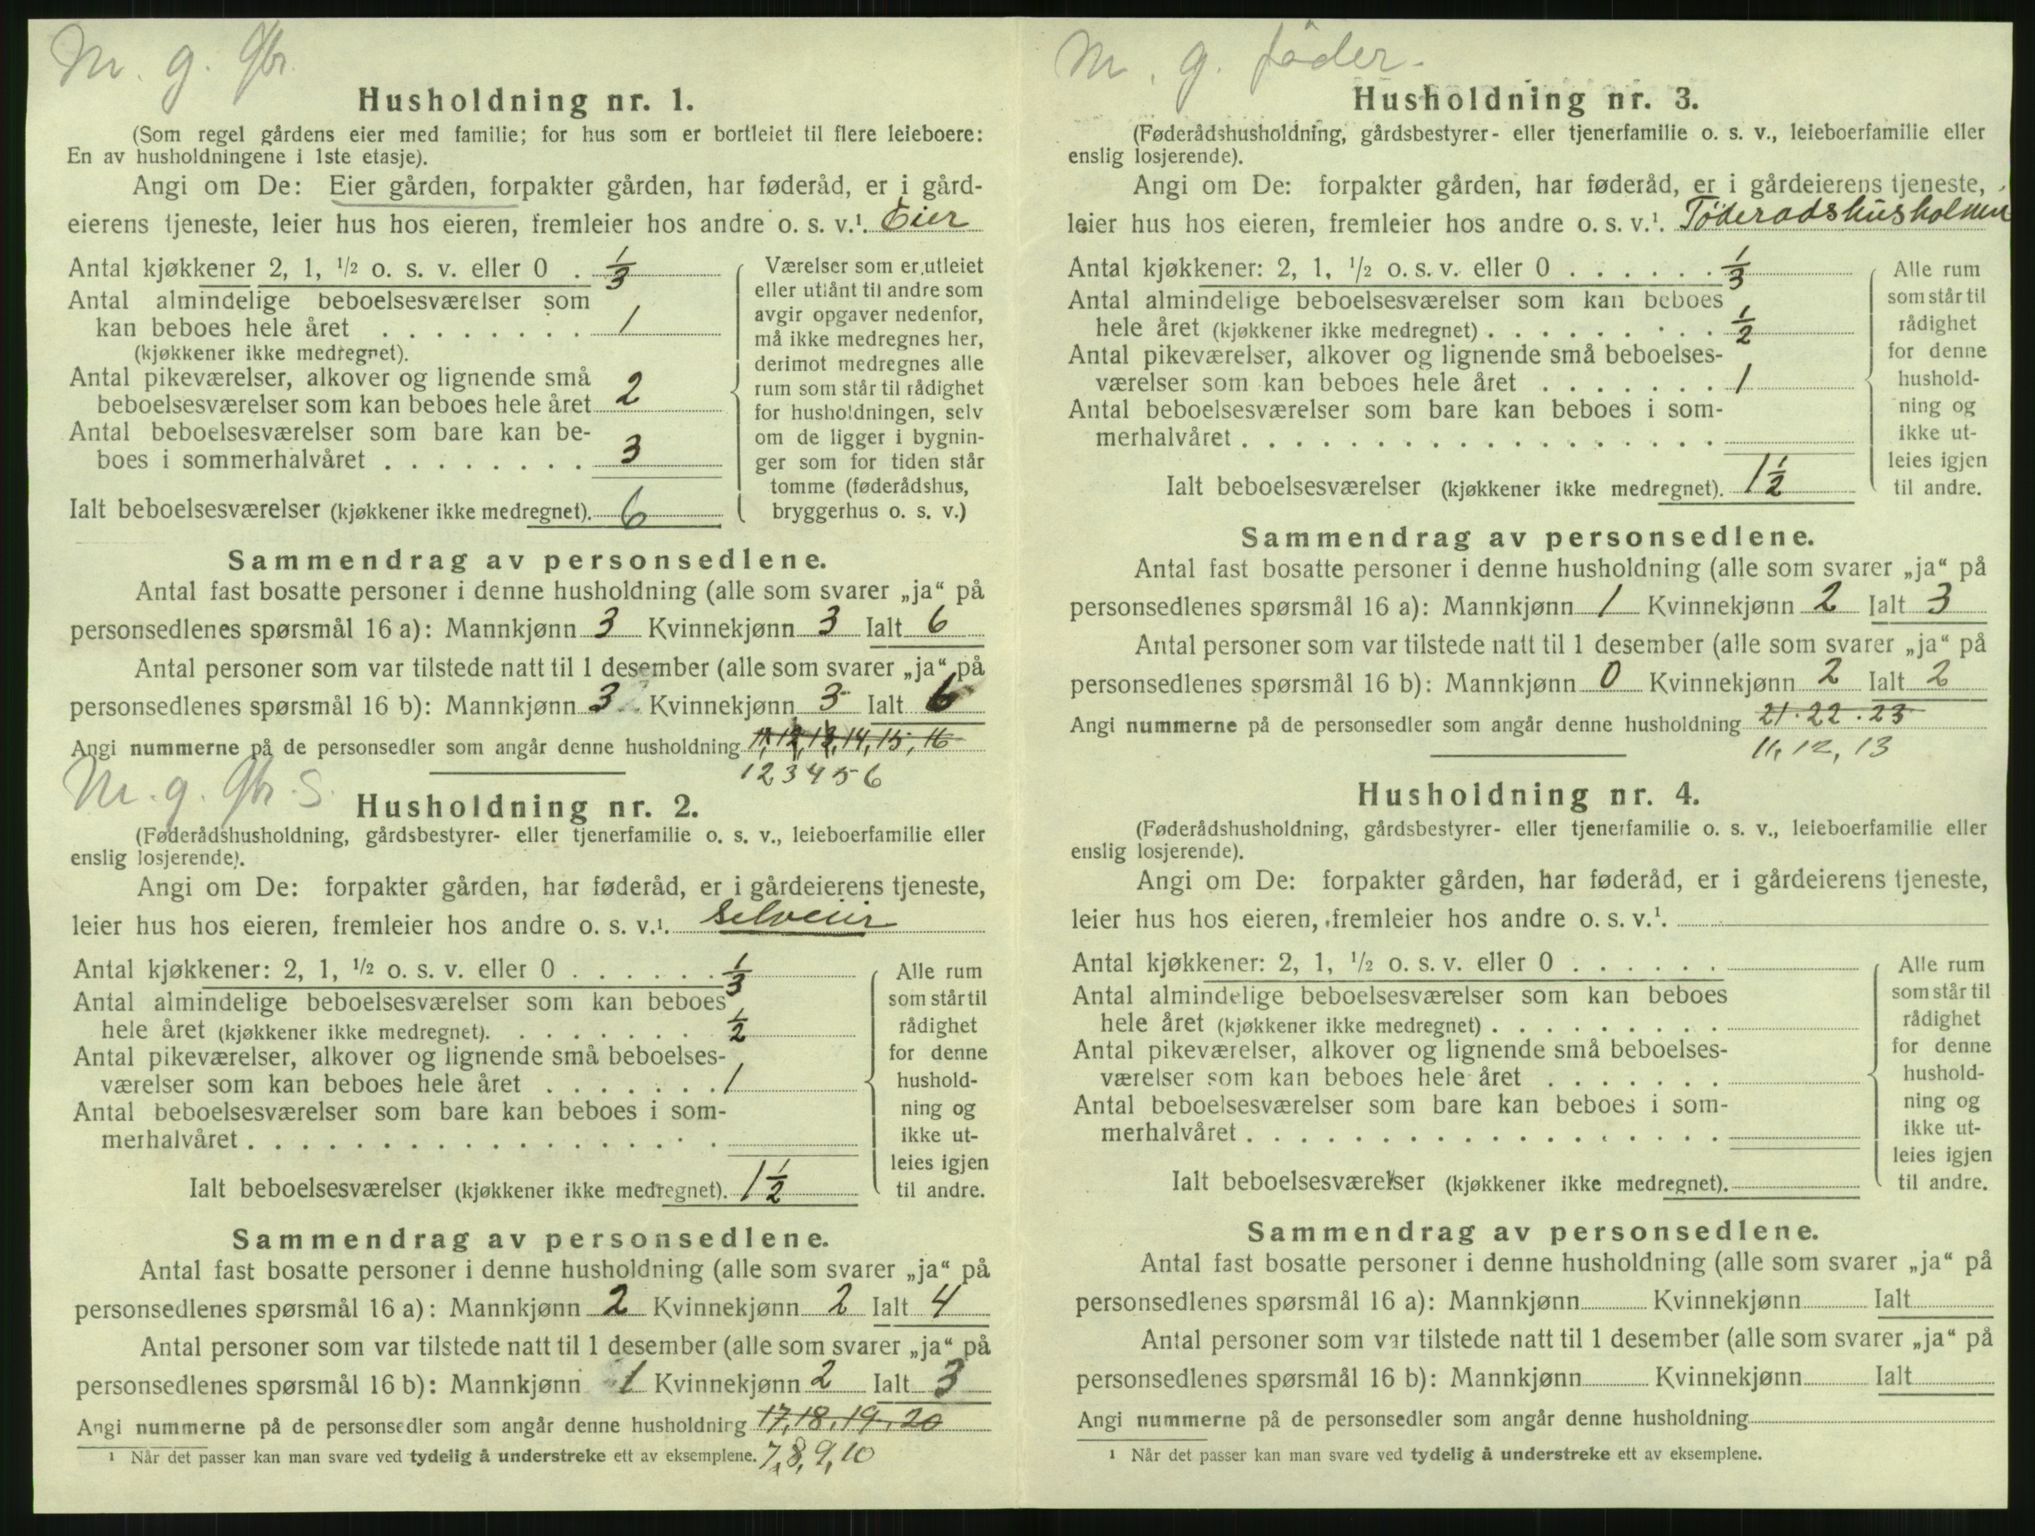 M. g. Gbr.
Husholdning nr. 1.
(Som regel gårdens eier med familie; for hus som er bortleiet til flere leieboere:
En av husholdningene i 1ste etasje).
Angi om De: Eier gården, forpakter gården, har føderåd, er i gård-
eierens tjeneste, leier hus hos eieren, fremleier hos andre o. s. v.¹. Eier
Antal kjøkkener 2, 1, ½ o. s. v. eller 0 . 1/3
Antal almindelige beboelsesværelser som
kan beboes hele året . . . . . . . . 1
(kjøkkener ikke medregnet).
Antal pikeværelser, alkover og lignende små
beboelsesværelser som kan beboes hele året 2
Antal beboelsesværelser som bare kan be-
boes i sommerhalvåret . . . . . . . . 3
Ialt beboelsesværelser (kjøkkener ikke medregnet). 6
Værelser som er utleiet
eller utlånt til andre som
avgir opgaver nedenfor,
må ikke medregnes her,
derimot medregnes alle
rum som står til rådighet
for husholdningen, selv
om de ligger i bygnin-
ger som for tiden står
tomme (føderådshus,
bryggerhus o. s. v.)
Sammendrag av personsedlene.
Antal fast bosatte personer i denne husholdning (alle som svarer „ja“ på
personsedlenes spørsmål 16 a): Mannkjønn 3 Kvinnekjønn 3 Ialt 6
Antal personer som var tilstede natt til 1 desember (alle som svarer „ja“ på
personsedlenes spørsmål 16 b): Mannkjønn 3 Kvinnekjønn 3 Ialt 6
Angi nummerne på de personsedler som angår denne husholdning 11, 12, 13, 14, 15, 16
1 2 3 4 5 6
M. g. Gbr. S.
Husholdning nr. 2.
(Føderådshusholdning, gårdsbestyrer- eller tjenerfamilie o. s. v., leieboerfamilie eller
enslig losjerende).
Angi om De: forpakter gården, har føderåd, er i gårdeierens tjeneste,
leier hus hos eieren, fremleier hos andre o. s. v.¹. selveier
Antal kjøkkener: 2, 1, ½ o. s. v. eller 0 . . . . . . 1/3
Antal almindelige beboelsesværelser som kan beboes
hele året (kjøkkener ikke medregnet). . . . . . . . 1/2
Antal pikeværelser, alkover og lignende små beboelses-
værelser som kan beboes hele året . . . . . . . 1
Antal beboelsesværelser som bare kan beboes i som-
merhalvåret . . . . . . . . . . . . . . . . . .
Ialt beboelsesværelser (kjøkkener ikke medregnet). 1 1/2
Alle rum
som står til
rådighet
for denne
hushold-
ning og
ikke ut-
leies igjen
til andre.
Sammendrag av personsedlene.
Antal fast bosatte personer i denne husholdning (alle som svarer „ja“ på
personsedlenes spørsmål 16 a): Mannkjønn 2 Kvinnekjønn 2 Ialt 4
Antal personer som var tilstede natt til 1 desember (alle som svarer „ja“ på
personsedlenes spørsmål 16 b): Mannkjønn 1 Kvinnekjønn 2 Ialt 3
Angi nummerne på de personsedler som angår denne husholdning 17, 18, 19, 20
¹ Når det passer kan man svare ved tydelig å understreke ett av eksemplene. 7, 8, 9, 10
M. g. föder.
Husholdning nr. 3.
(Føderådshusholdning, gårdsbestyrer- eller tjenerfamilie o. s. v., leieboerfamilie eller
enslig losjerende).
Angi om De: forpakter gården, har føderåd, er i gårdeierens tjeneste,
leier hus hos eieren, fremleier hos andre o. s. v.¹. Föderadshusholdnin
Antal kjøkkener: 2, 1, ½ o. s. v. eller 0 . . . . . . 1/3
Antal almindelige beboelsesværelser som kan beboes
hele året (kjøkkener ikke medregnet) . . . . . . . . 1/2
Antal pikeværelser, alkover og lignende små beboelses-
værelser som kan beboes hele året . . . . . . . 1
Antal beboelsesværelser som bare kan beboes i som-
merhalvåret . . . . . . . . . . . . . . . . . .
Ialt beboelsesværelser (kjøkkener ikke medregnet). 1 1/2
Alle rum
som står til
rådighet
for denne
hushold-
ning og
ikke ut-
leies igjen
til andre.
Sammendrag av personsedlene.
Antal fast bosatte personer i denne husholdning (alle som svarer „ja“ på
personsedlenes spørsmål 16 a): Mannkjønn 1 Kvinnekjønn 2 Ialt 3
Antal personer som var tilstede natt til 1 desember (alle som svarer „ja“ på
personsedlenes spørsmål 16 b): Mannkjønn 0 Kvinnekjønn 2 Ialt 2
Angi nummerne på de personsedler som angår denne husholdning 21. 22. 23
11, 12, 13
Husholdning nr. 4.
(Føderådshusholdning, gårdsbestyrer- eller tjenerfamilie o. s. v., leieboerfamilie eller
enslig losjerende).
Angi om De: forpakter gården, har føderåd, er i gårdeierens tjeneste,
leier hus hos eieren, fremleier hos andre o. s. v.¹.
Antal kjøkkener: 2, 1, ½ o. s. v. eller 0 . . . . . .
Antal almindelige beboelsesværelser som kan beboes
hele året (kjøkkener ikke medregnet) . . . . . . . . .
Antal pikeværelser, alkover og lignende små beboelses-
værelser som kan beboes hele året . . . . . . .
Antal beboelsesværelser som bare kan beboes i som-
merhalvåret . . . . . . . . . . . . . . . . . .
Ialt beboelsesværelser (kjøkkener ikke medregnet).
Alle rum
som står til
rådighet
for denne
hushold-
ning og
ikke ut-
leies igjen
til andre.
Sammendrag av personsedlene.
Antal fast bosatte personer i denne husholdning (alle som svarer „ja“ på
personsedlenes spørsmål 16 a): Mannkjønn Kvinnekjønn Ialt
Antal personer som var tilstede natt til 1 desember (alle som svarer „ja“ på
personsedlenes spørsmål 16 b): Mannkjønn Kvinnekjønn Ialt
Angi nummerne på de personsedler som angår denne husholdning
¹ Når det passer kan man svare ved tydelig å understreke ett av eksemplene.